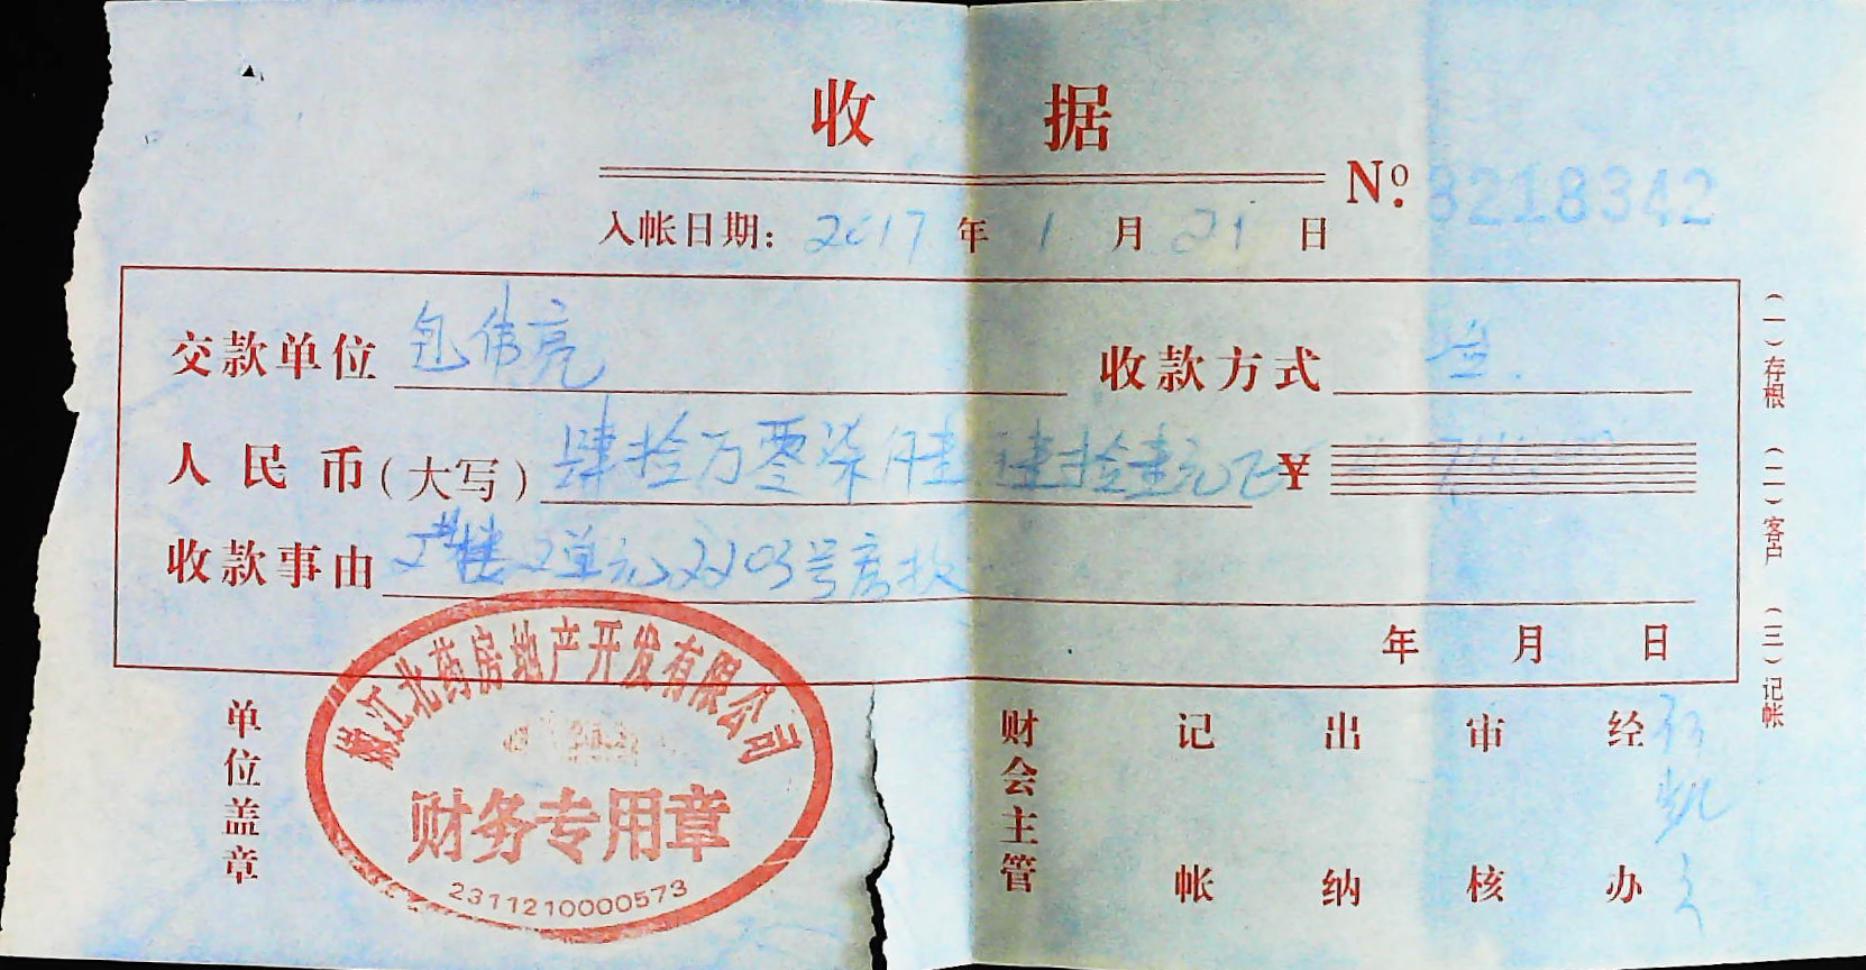 收 据
No: 3218342
入帐日期: 2017 年 1 月 21 日
交款单位 包伟亮 收款方式
人民币(大写) 肆拾万零柒仟壹 壹拾壹元 ¥
收款事由 楼2单元2203号房款
年 月 日
(一)存根 (二)客户 (三)记帐
单位盖章
嫩江北药房地产开发有限公司
财务专用章
2311210000573
财会主管 记帐 出纳 审核 经办